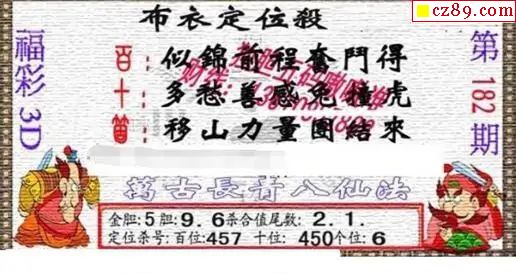 cz89.com
布衣定位殺
福彩3D
第182期
百：似錦前程奮鬥得
十：多愁善感兔撞虎
個：移山力量團結來
萬古長青八仙法
金胆:5胆:9.6杀合值尾数:2.1.
定位杀号:百位:457 十位:450个位:6